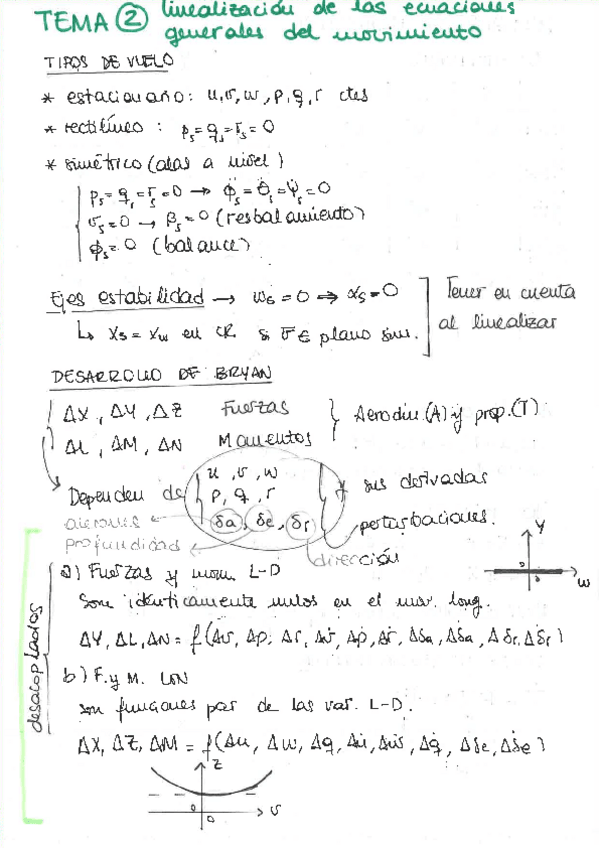 TEMA ② linealización de las ecuaciones
generales del movimiento
TIPOS DE VUELO
* estacionario: u, v, w, p, q, r ctes
* rectilíneo : ps = qs = rs = 0
* simétrico (alas a nivel)
ps = qs = rs = 0 → φ̇s = θ̇s = ψ̇s = 0
vs = 0 → βs = 0 (resbalamiento)
φs = 0 (balance)
Ejes estabilidad → ws = 0 ⇒ αs = 0
↳ xs = xw en CR si v̄ ∈ plano sim.
Tener en cuenta
al linealizar
DESARROLLO DE BRYAN
ΔX, ΔY, ΔZ Fuerzas
ΔL, ΔM, ΔN Momentos
Aerodin.(A) y prop.(T)
Dependen de
u, v, w
p, q, r
δa, δe, δr
y sus derivadas
perturbaciones.
alerones
profundidad
dirección
Y
w
desacoplados
a) Fuerzas y mom. L-D
Son idénticamente nulos en el mov. long.
ΔY, ΔL, ΔN = f(Δv, Δp, Δr, Δv̇, Δṗ, Δṙ, Δδa, Δδ̇a, Δδr, Δδ̇r)
b) F. y M. LON
son funciones par de las var. L-D.
ΔX, ΔZ, ΔM = f(Δu, Δw, Δq, Δu̇, Δẇ, Δq̇, Δδe, Δδ̇e)
Z
0 0 v